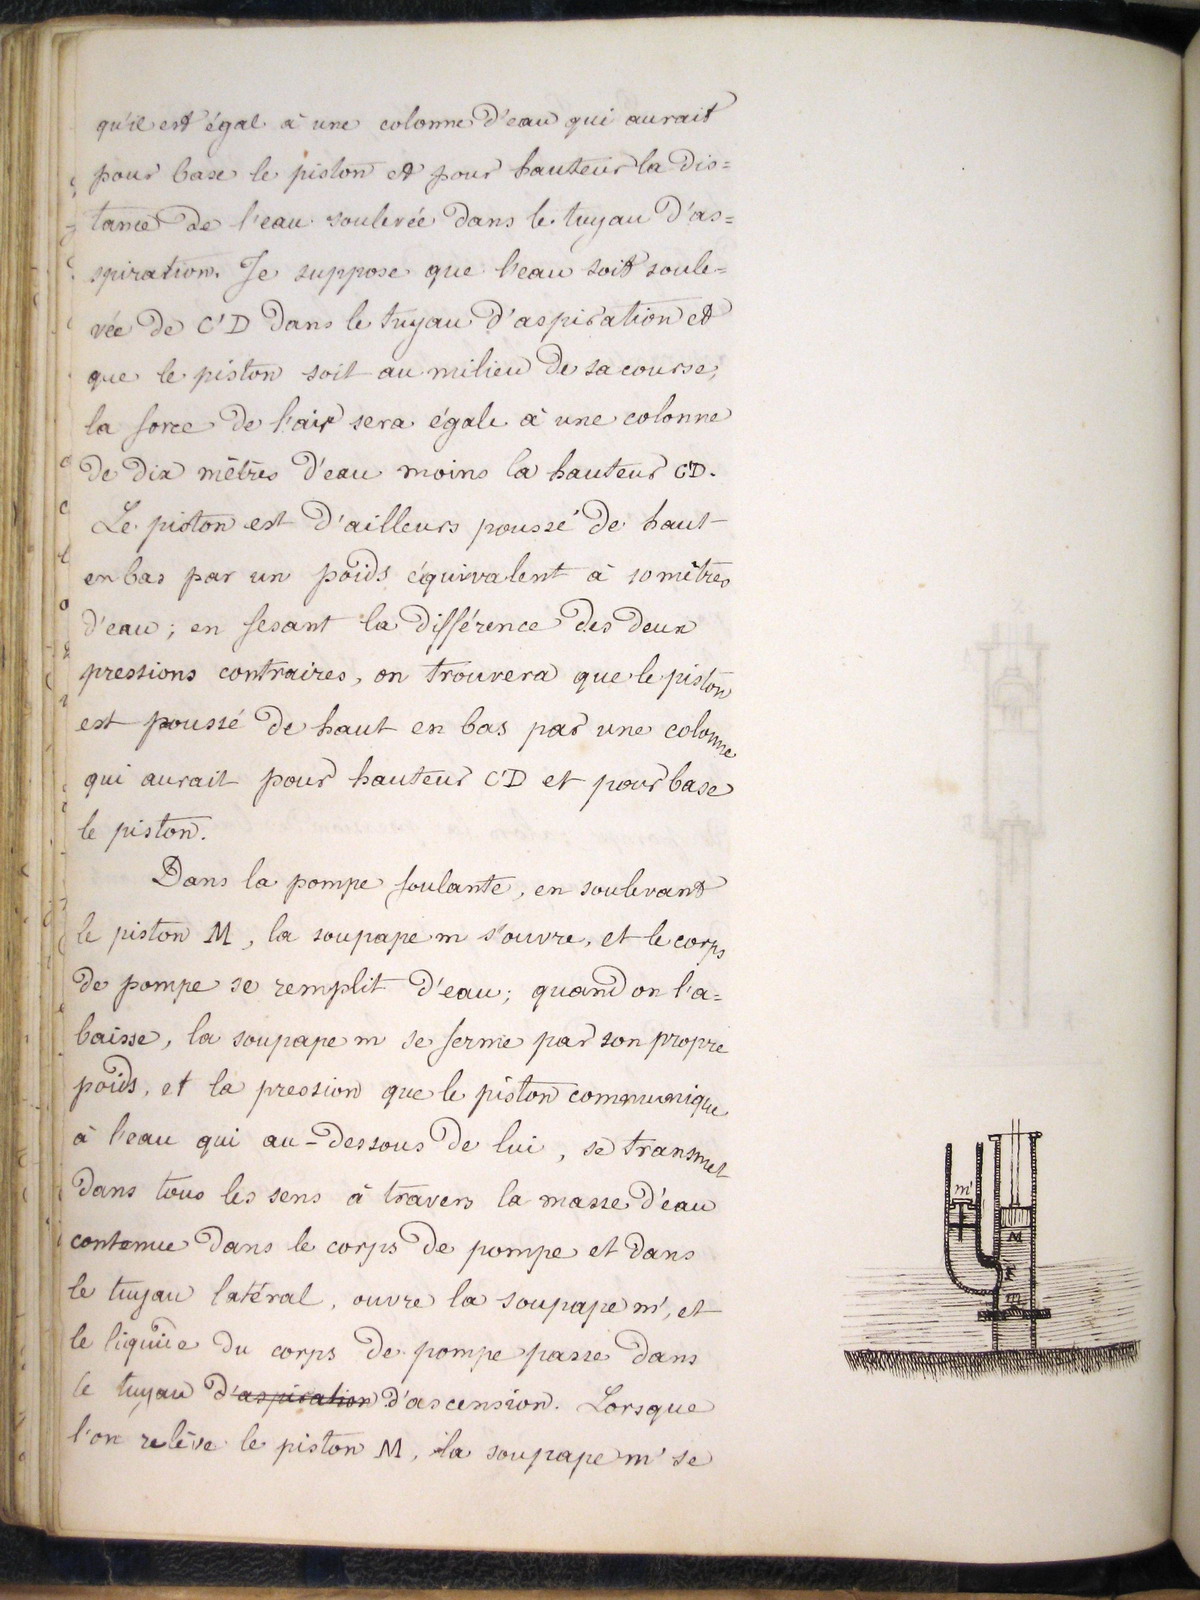 qu'il est égal à une colonne d'eau qui aurait
pour base le piston et pour hauteur la dis=
tance de l'eau soulevée dans le tuyau d'as=
spiration. Je suppose que l'eau soit soule=
vée de C'D dans le tuyau d'aspiration et
que le piston soit au milieu de sa course;
la force de l'air sera égale à une colonne
de dix mètres d'eau moins la hauteur C'D.
Le piston est d'ailleurs poussé de haut
en bas par un poids équivalent à 10 mètres
d'eau; en fesant la différence des deux
pressions contraires, on trouvera que le piston
est poussé de haut en bas par une colonne
qui aurait pour hauteur C'D et pour base
le piston.
Dans la pompe foulante, en soulevant
le piston M, la soupape m s'ouvre, et le corps
de pompe se remplit d'eau; quand on l'a=
baisse, la soupape m se ferme par son propre
poids, et la pression que le piston communique
à l'eau qui au-dessous de lui, se transmet
dans tous les sens à travers la masse d'eau
contenue dans le corps de pompe et dans
le tuyau latéral, ouvre la soupape m', et
le liquide du corps de pompe passe dans
le tuyau d'aspiration d'ascension. Lorsque
l'on relève le piston M, la soupape m' se
m'
M
m